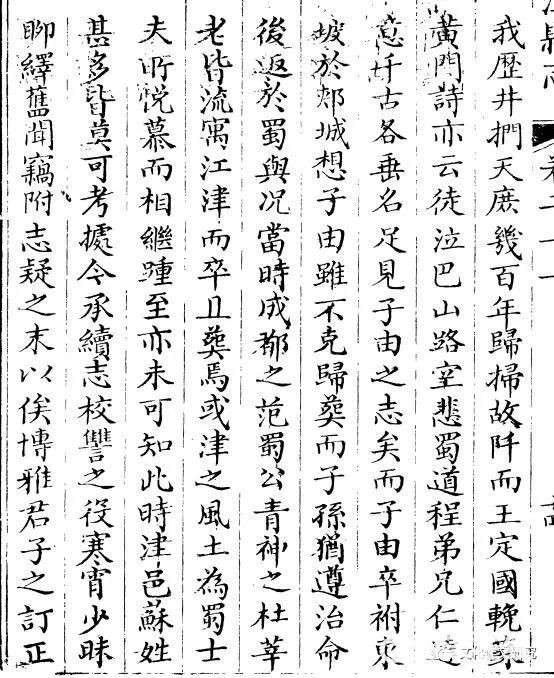 我歷井捫天庶幾百年歸掃故阡而王定國輓蘇
黃門詩亦云徒泣巴山路空悲蜀道程弟兄仁達
意千古各垂名足見子由之志矣而子由卒祔東
坡於郟城想子由雖不克歸葬而子孫猶遵治命
後返於蜀與况當時成都之范蜀公青神之杜莘
老皆流寓江津而卒且葬焉或津之風土為蜀士
夫所悅慕而相繼踵至亦未可知此時津邑蘇姓
甚多皆莫可考據今承續志校讐之役寒宵少昧
聊繹舊聞竊附志疑之末以俟博雅君子之訂正